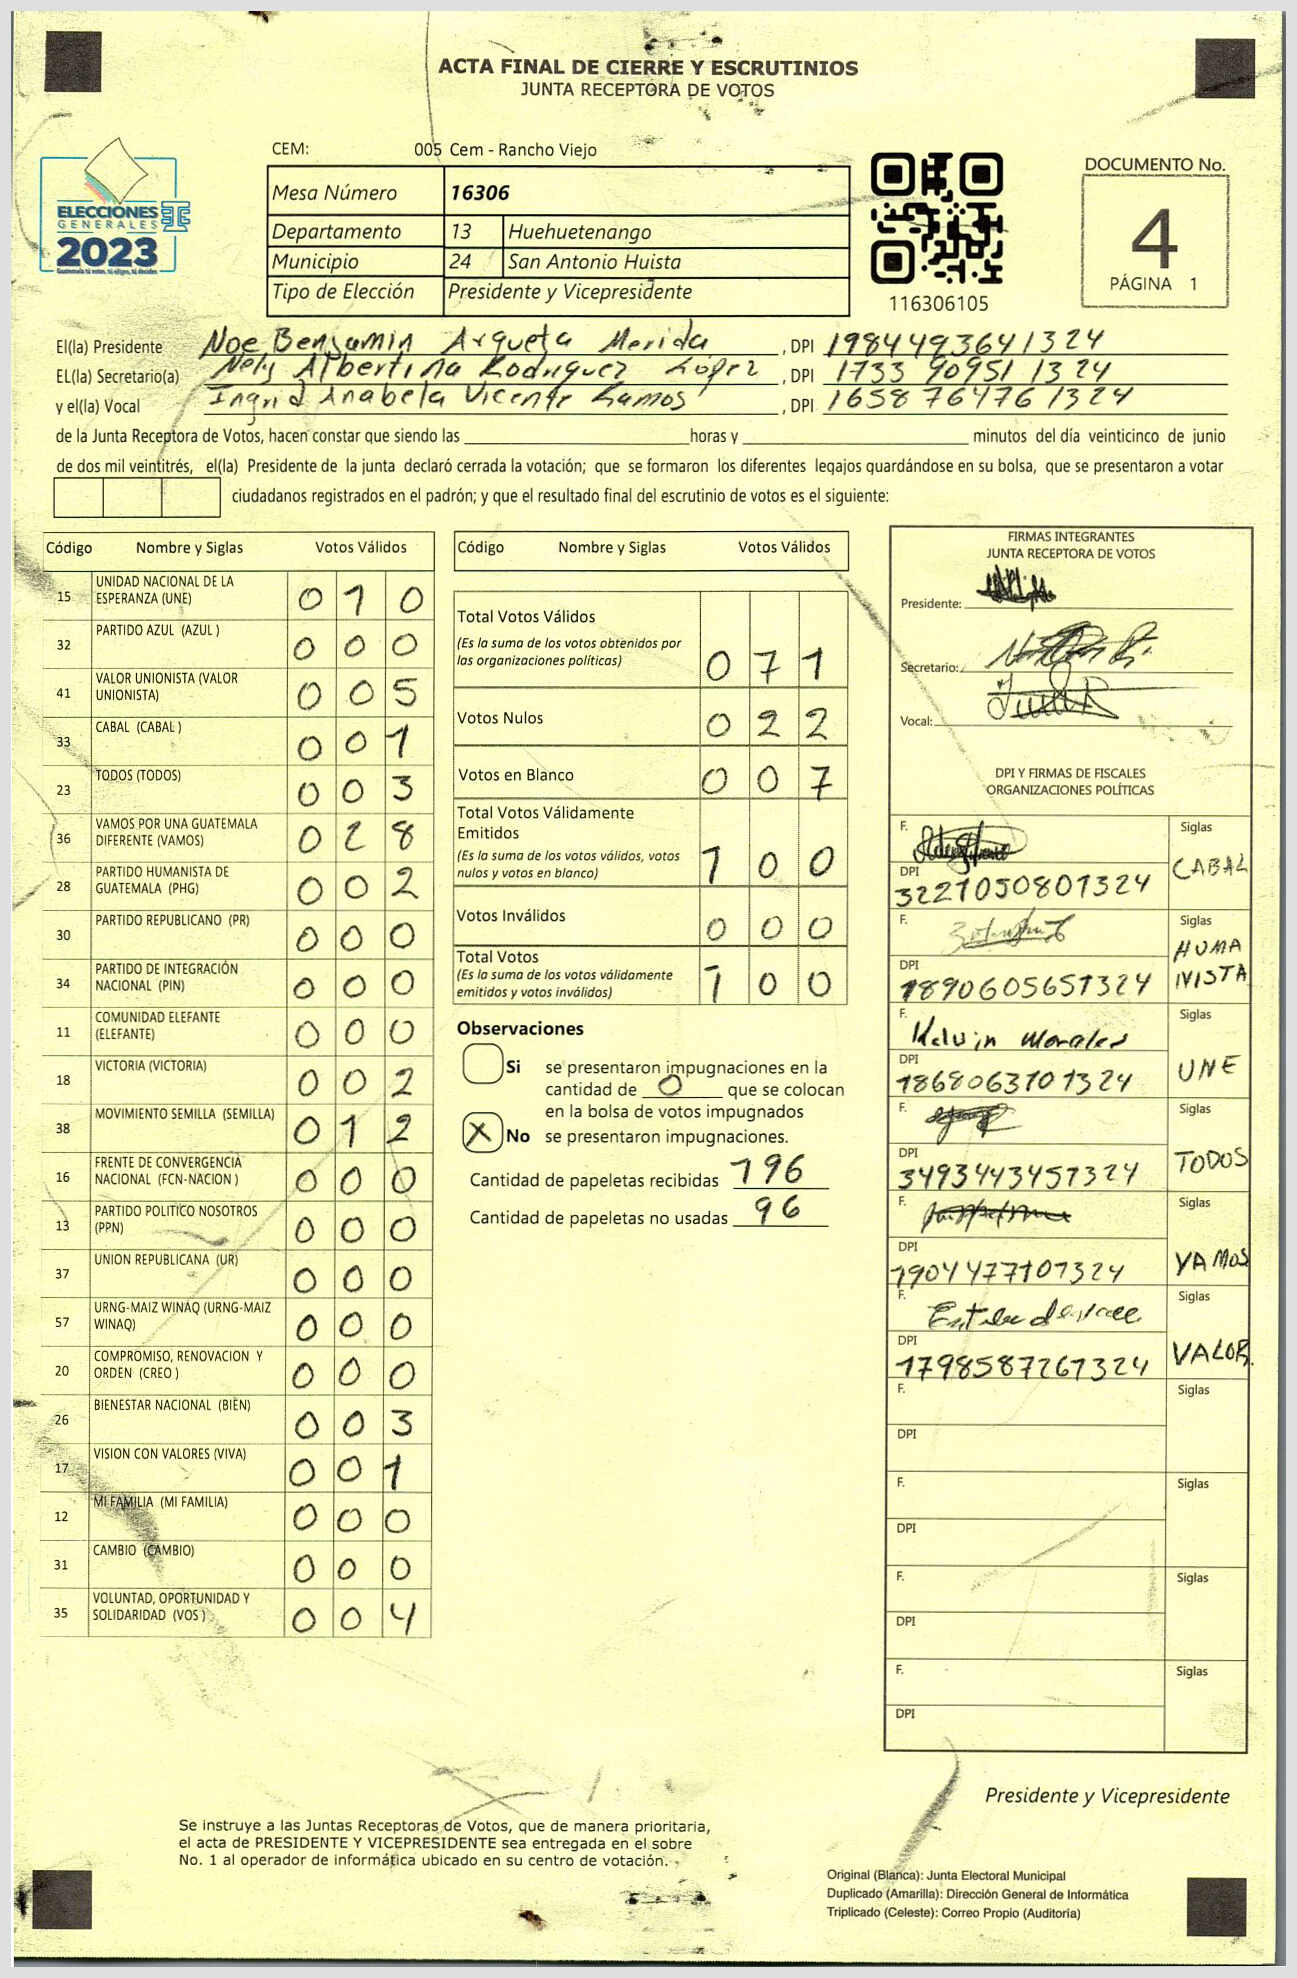 ACTA FINAL DE CIERRE Y ESCRUTINIOS
JUNTA RECEPTORA DE VOTOS
CEM: 005 Cem - Rancho Viejo
ELECCIONES
GENERALES
2023
Guatemala tú votas, tú eliges, tú decides
Mesa Número 16306
Departamento 13 Huehuetenango
Municipio 24 San Antonio Huista
Tipo de Elección Presidente y Vicepresidente
116306105
DOCUMENTO No.
4
PÁGINA 1
El(la) Presidente Noe Benjamin Argueta Merida, DPI 1984493641324
EL(la) Secretario(a) Nely Albertina Rodriguez López, DPI 1733 90951 1324
y el(la) Vocal Ingrid Anabela Vicente Ramos, DPI 1658 76476 1324
de la Junta Receptora de Votos, hacen constar que siendo las horas y minutos del día veinticinco de junio
de dos mil veintitrés, el(la) Presidente de la junta declaró cerrada la votación; que se formaron los diferentes legajos guardándose en su bolsa, que se presentaron a votar
ciudadanos registrados en el padrón; y que el resultado final del escrutinio de votos es el siguiente:
Código Nombre y Siglas Votos Válidos
15 UNIDAD NACIONAL DE LA ESPERANZA (UNE) 0 1 0
32 PARTIDO AZUL (AZUL ) 0 0 0
41 VALOR UNIONISTA (VALOR UNIONISTA) 0 0 5
33 CABAL (CABAL ) 0 0 1
23 TODOS (TODOS) 0 0 3
36 VAMOS POR UNA GUATEMALA DIFERENTE (VAMOS) 0 2 8
28 PARTIDO HUMANISTA DE GUATEMALA (PHG) 0 0 2
30 PARTIDO REPUBLICANO (PR) 0 0 0
34 PARTIDO DE INTEGRACIÓN NACIONAL (PIN) 0 0 0
11 COMUNIDAD ELEFANTE (ELEFANTE) 0 0 0
18 VICTORIA (VICTORIA) 0 0 2
38 MOVIMIENTO SEMILLA (SEMILLA) 0 1 2
16 FRENTE DE CONVERGENCIA NACIONAL (FCN-NACION ) 0 0 0
13 PARTIDO POLITICO NOSOTROS (PPN) 0 0 0
37 UNION REPUBLICANA (UR) 0 0 0
57 URNG-MAIZ WINAQ (URNG-MAIZ WINAQ) 0 0 0
20 COMPROMISO, RENOVACION Y ORDEN (CREO ) 0 0 0
26 BIENESTAR NACIONAL (BIEN) 0 0 3
17 VISION CON VALORES (VIVA) 0 0 1
12 MI FAMILIA (MI FAMILIA) 0 0 0
31 CAMBIO (CAMBIO) 0 0 0
35 VOLUNTAD, OPORTUNIDAD Y SOLIDARIDAD (VOS ) 0 0 4
Código Nombre y Siglas Votos Válidos
Total Votos Válidos
(Es la suma de los votos obtenidos por
las organizaciones políticas) 0 7 1
Votos Nulos 0 2 2
Votos en Blanco 0 0 7
Total Votos Válidamente
Emitidos
(Es la suma de los votos válidos, votos
nulos y votos en blanco) 1 0 0
Votos Inválidos 0 0 0
Total Votos
(Es la suma de los votos válidamente
emitidos y votos inválidos) 1 0 0
Observaciones
Si se presentaron impugnaciones en la
cantidad de 0 que se colocan
en la bolsa de votos impugnados
X No se presentaron impugnaciones.
Cantidad de papeletas recibidas 196
Cantidad de papeletas no usadas 96
FIRMAS INTEGRANTES
JUNTA RECEPTORA DE VOTOS
Presidente:
Secretario:
Vocal:
DPI Y FIRMAS DE FISCALES
ORGANIZACIONES POLÍTICAS
F. Siglas
CABAL
DPI
3221050801324
F. Siglas
HUMA
NISTA
DPI
1890605651324
F. Kelvin Morales Siglas
UNE
DPI
1868063101324
F. Siglas
TODOS
DPI
3493443451324
F. Siglas
VAMOS
DPI
1904477101324
F. Siglas
VALOR.
DPI
1798587261324
F. Siglas
DPI
F. Siglas
DPI
F. Siglas
DPI
F. Siglas
DPI
Presidente y Vicepresidente
Se instruye a las Juntas Receptoras de Votos, que de manera prioritaria,
el acta de PRESIDENTE Y VICEPRESIDENTE sea entregada en el sobre
No. 1 al operador de informática ubicado en su centro de votación.
Original (Blanca): Junta Electoral Municipal
Duplicado (Amarilla): Dirección General de Informática
Triplicado (Celeste): Correo Propio (Auditoría)